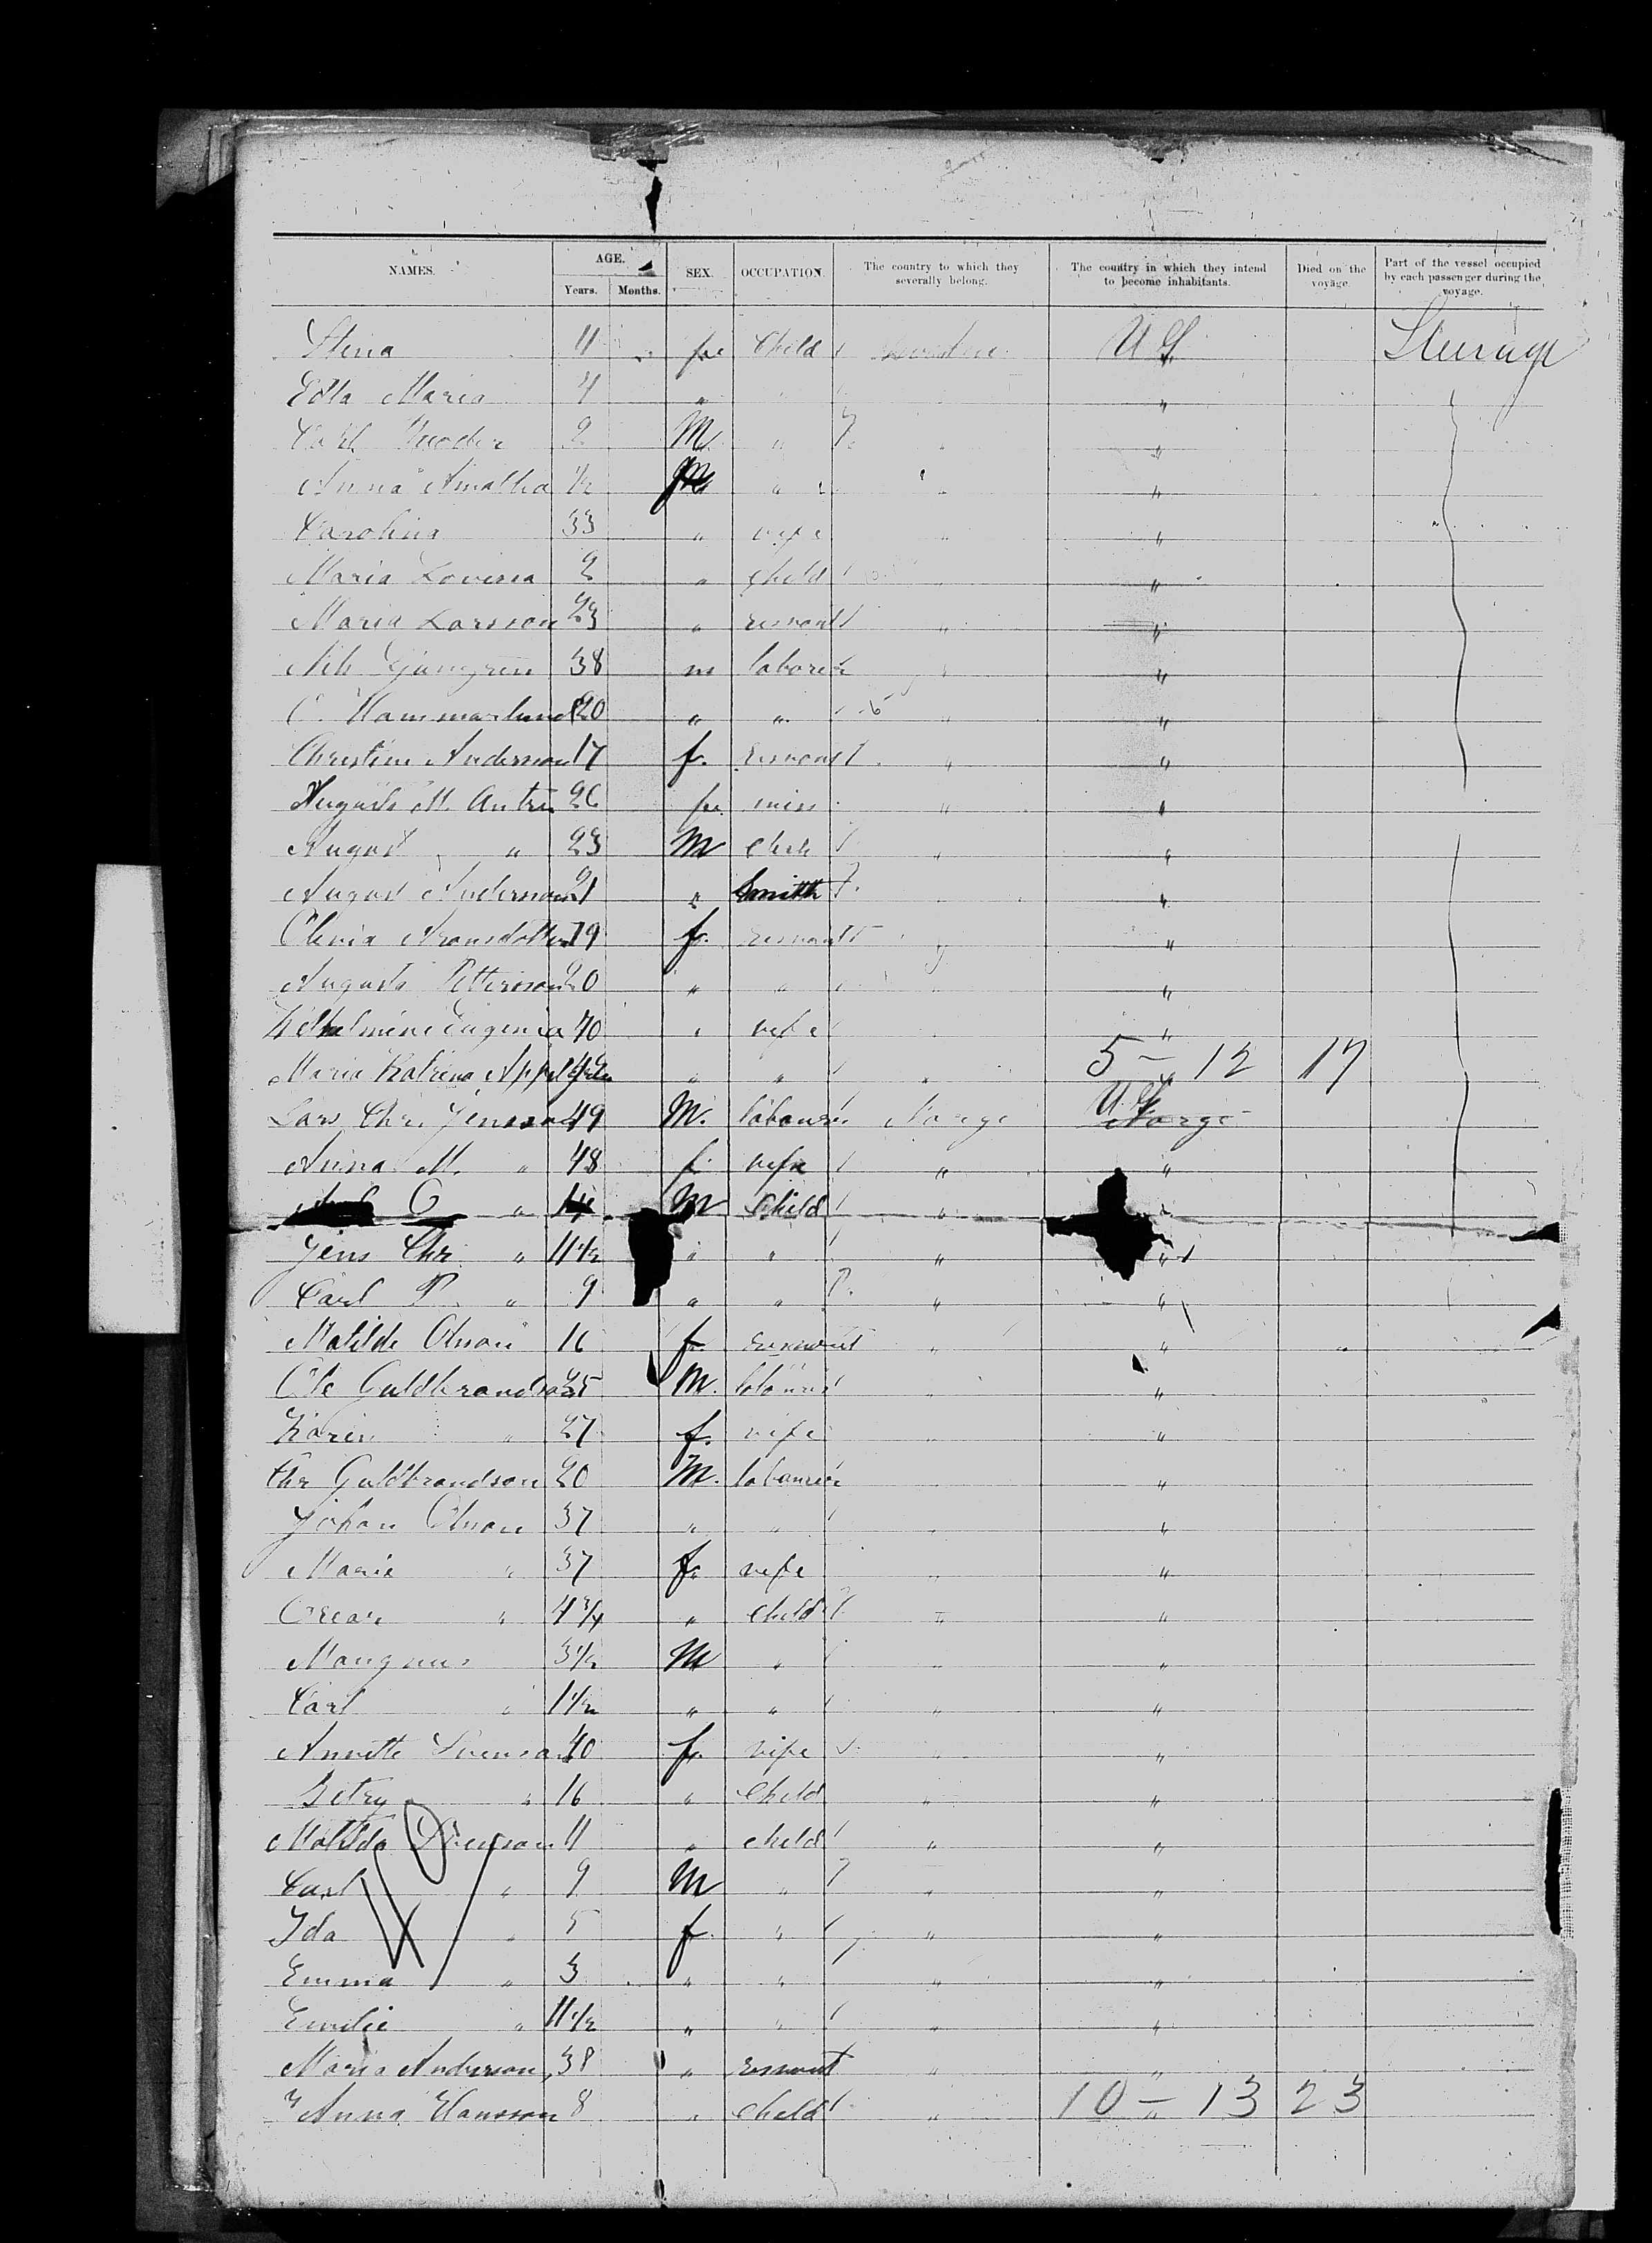 NAMES. AGE. SEX. OCCUPATION. The country to which they severally belong. The country in which they intend to become inhabitants. Died on the voyage. Part of the vessel occupied by each passenger during the voyage.
Years. Months.
Stina 11 fe Child U S Steerage
Edla Maria 4 " "
Carl 2 M " "
Anna Amalia 1/2 " "
Carolina 33 " wife "
Maria Lovisa 2 " child "
Maria Larsson 23 " servant "
Nils 38 m laborer "
C. Hammarlund 20 " " "
Christine Anderson 17 f. servant " "
Augusta M. 26 fe miss " "
August " 23 M " "
August Anderson 21 " Smith "
19 f. servant " "
Augusta Petterson 20 " " "
Eugenia 40 " wife "
Maria Katrina " " " 5 - 12 17
Lars Chr. Jenson 49 M. labourer Norge U.S. Norge
Anna M. " 48 f. wife " "
O " 14 M Child "
Jens Chr. " 11 1/2 " " " "
Carl P. " 9 " " " "
Matilde Olson 16 f. servant " "
Ole Guldbrandson 25 M. labourer "
Karin " 27 f. wife " "
Chr Guldbrandson 20 M. labourer "
Johan Olson 37 " " " "
Marie " 37 f. wife " "
Oscar " 4 3/4 " child " "
Mangnus 3 1/2 M " " "
Carl " 1 1/2 " " " "
Annette Svenson 40 f. wife " "
Betzy " 16 " Child " "
Matilda Svenson 11 " child " "
Carl " 9 M " " "
Ida " 5 f. " " "
Emma " 3 " " " "
Emilie " 11 1/2 " " " "
Maria Anderson 38 " servant " "
Anna Hansson 8 " child " 10 - 13 23